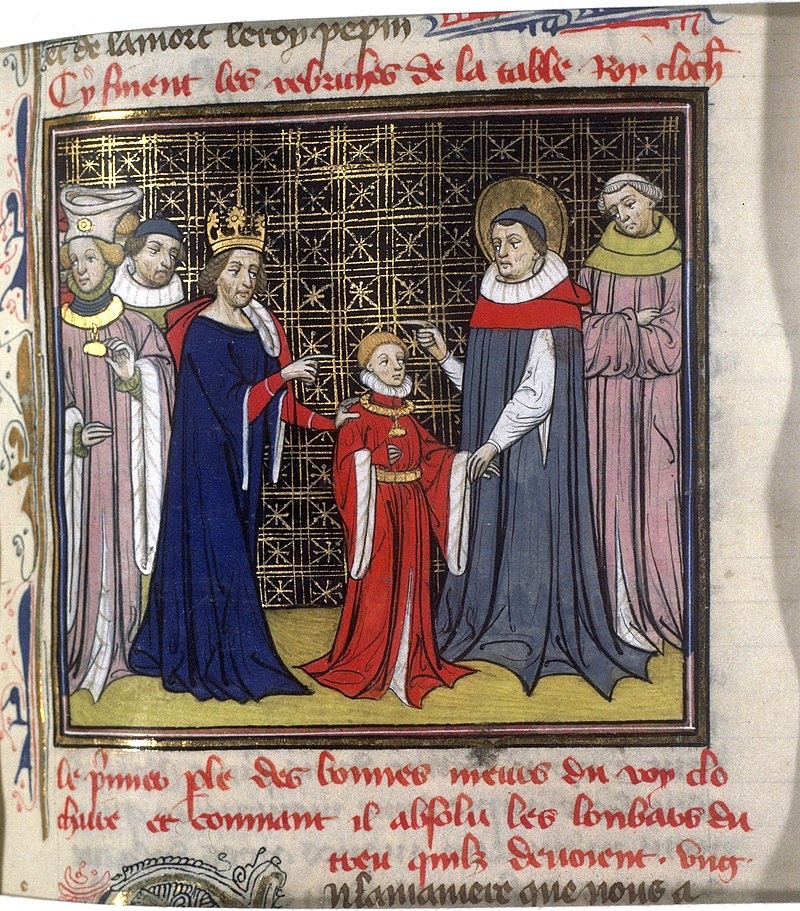 et de la mort le roy pepin
Cy finent les rebriches de la table Roy cloth
le pmier ple des bonnes meurs du roy clo
thaire et comant il absolu les lonbars du
treu quilz devoient. vng.
N la maniere que nous a